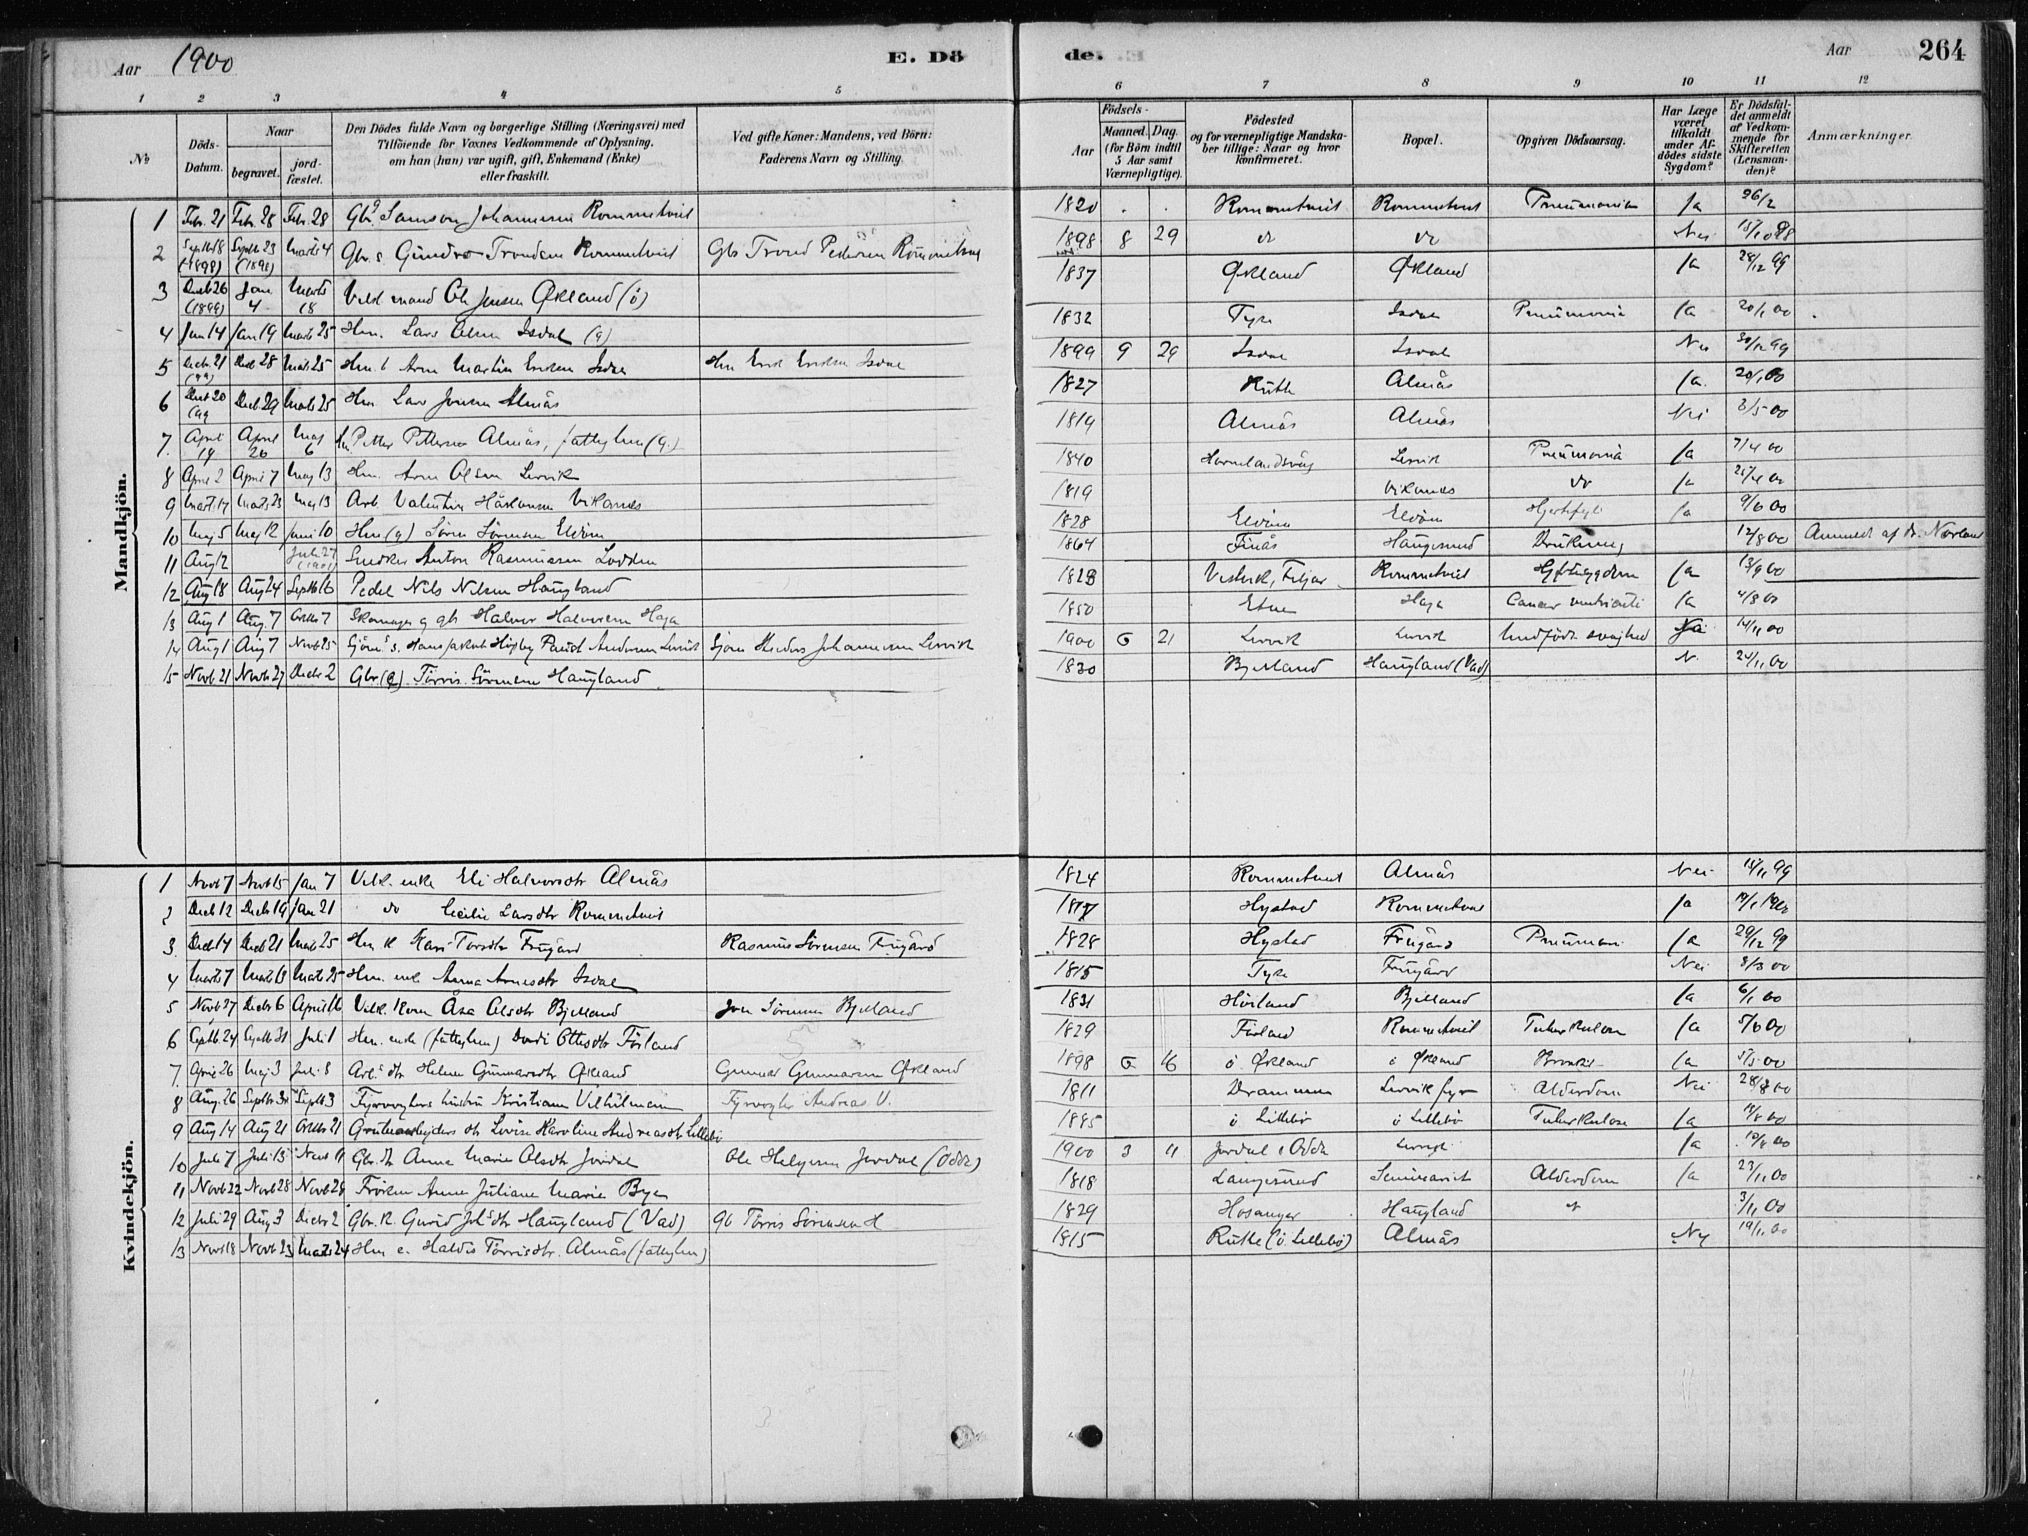 Aar 1900 E. Dö de. Aar 264
1 2 3 4 5 6 7 8 9 10 11 12
No Döds-Datum. Naar begravet. jord-fæstet. Den Dödes fulde Navn og borgerlige Stilling (Næringsvei) med Tilföiende for Voxnes Vedkommende af Oplysning, om han (hun) var ugift, gift, Enkemand (Enke) eller fraskilt. Ved gifte Koner: Mandens, ved Börn: Faderens Navn og Stilling. Födsels- Aar Maaned. Dag. (for Börn indtil 5 Aar samt Værnepligtige). Födested og for værnepligtige Mandskaber tillige: Naar og hvor konfirmeret. Bopæl. Opgiven Dödsaarsag. Har Læge været tilkaldt under Afdödes sidste Sygdom? Er Dödsfaldet anmeldt af Vedkommende for Skifteretten (Lensmanden)? Anmærkninger.
Mandkjön.
1 Febr. 21 Febr. 28 Febr. 28 Gbr Samson Johannesen Rommetveit 1820 Rommetveit Rommetveit Pneumonia Ja 26/2
2 Septb 18 (1898) Septb 23 (1898) Marts 4 Gbr. s. Trondsen Rommetveit Gbr Trond Pedersen Rommetveit 1898 8 29 do do Nei
3 Decb 26 (1899) Jan 4 Marts 18 Velk mand Ole Jensen Økland (ö) 1837 Økland Økland Ja 28/12 99
4 Jan 14 Jan 19 Marts 25 Hm. Lars Olsen Isdal (g) 1832 Tyse Isdal Pneumonia Ja 20/1 00
5 Decb 21 (99) Decb 28 Marts 25 Hm. s Arne Martin Eriksen Isdal Hm Erik Eriksen Isdal 1899 9 29 Isdal Isdal Nei 30/12 99
6 Decb 20 (99 Decb 29 Marts 25 Hm. Lars Jensen Almås 1827 Rutle Almås Ja. 20/1 00
7. April 19 April 26 Maj 6 Hm. Petter Pettersen Almås, fattighm (g.) 1819 Almås Almås Nei 3/5 00
8 April 2 April 7 Maj 13 Hm. Arne Olsen Lervik 1840 Hornelandsvåg Lervik Pneumonia Ja 7/4 00
9 Marts 17 Marts 23 Maj 13 Arb Valentin Håkonsen Vikanes 1819 Vikanes do Ja
10 Maj 5 Maj 12 Juni 10 Hm (g) Sören Sörensen Eldöen 1828 Eldöen Eldöen Hjertefejl Ja 9/6 00
11 Aug 2 Juli 27 (1901) Snedker Anton Rasmussen Lodden 1864 Finås Haugesund Drukning 12/8 00 Anmeldt af
12 Aug 18 Aug 24 Septb 16 Pedel Nils Nilsen Haugland 1823 Vestvik, Fitjar Rommetveit Ja 13/9 00
13 Aug 1 Aug. 7 Octb 7 Skomager g gb Halvor Halvorsen Haga 1850 Etne Haga Cancer ventriculi Ja 4/8 00
14 Aug 1 Aug 7 Novb 25 Sjöm s. Hans Jakob Andersen Lervik Sjöm Anders Johannesen Lervik 1900 6 21 Lervik Lervik Medfödt svaghed Ja 14/11 00
15 Novb 21 Novb 27 Decb 2 Gbr (g) Törris Sörensen Haugland 1830 Bjelland Haugland (Vad) N. 24/11 00
Kvindekjön.
1 Novb 7 Novb 15 Jan 7 Velk. enke Eli Halvorsdtr Almås 1824 Rommetveit Almås Nei 15/11 99
2 Decb 12 Decb 19 Jan 21 do Cecilie Larsdtr Rommetveit 1817 Hystad Rommetveit Ja
3. Decb 14 Decb 21 Marts 25 Hm. k Kari Torsdtr Frugård Rasmus Sörensen Frugård 1828 Hystad Frugård Pneumoni Ja 29/12 99
4 Marts 7 Marts 13 Marts 25 Hm. enk Anna Arnesdtr Isdal 1815 Tyse Frugård Nei 8/3 00
5 Novb 27 Decb 6 April 16 Velk. Kone Åsa Olsdtr Bjelland Jon Sörensen Bjelland 1831 Hörland Bjelland Ja 6/1 00
6 Septb. 24 Septb 31 Juli 1 Hm. enke (fattighm) Dordi Ottesdtr Förland 1829 Förland Rommetveit Tuberkulose Ja
7. April 26 Maj 3 Juli 8 Arb. dtr Helene Gunnarsdtr Økland Gunnar Gunnarsen Økland 1898 6 16 ö Økland ö Økland Bronkit Ja 5/5 00
8 Aug. 26 Septb 3 Septb 3 Fyrvogters hustru Kristiane Vilhelmsen Fyrvogter Andreas V. 1811 Drammen Lervik fyr Alderdom Nei 28/8 00
9 Aug 14 Aug 21 Octb 21 Grubearbeiders dtr Lovise Karoline Andreasdtr Lillebö 1885 ö Lillebö ö Lillebö Tuberkulose Ja
10 Juli 7 Juli 15 Novb 11 Gbr. dtr Anna Marie Olsdtr Jordal Ole Helgesen Jordal (Odda) 1900 3 11 Jordal i Odda Lervik Ja
11 Novb 22 Novb 28 Novb 28 Fröken Anne Juliane Marie Bye 1818 Langesund Seminariet Alderdom Ja 23/11 00
12 Juli 29 Aug 3 Decbr 2 Gbr. K. Gurid Johsdtr Haugland (Vad) Gb Törris Sörensen H 1829 Hosanger Haugland 3/11 00
13 Novb 18 Novb 23 Marts 24 Hm e. Haldis Törrisdtr. Almås (fattighm) 1815 Rutle (ö. Lillebö) Almås Nej 19/11 00